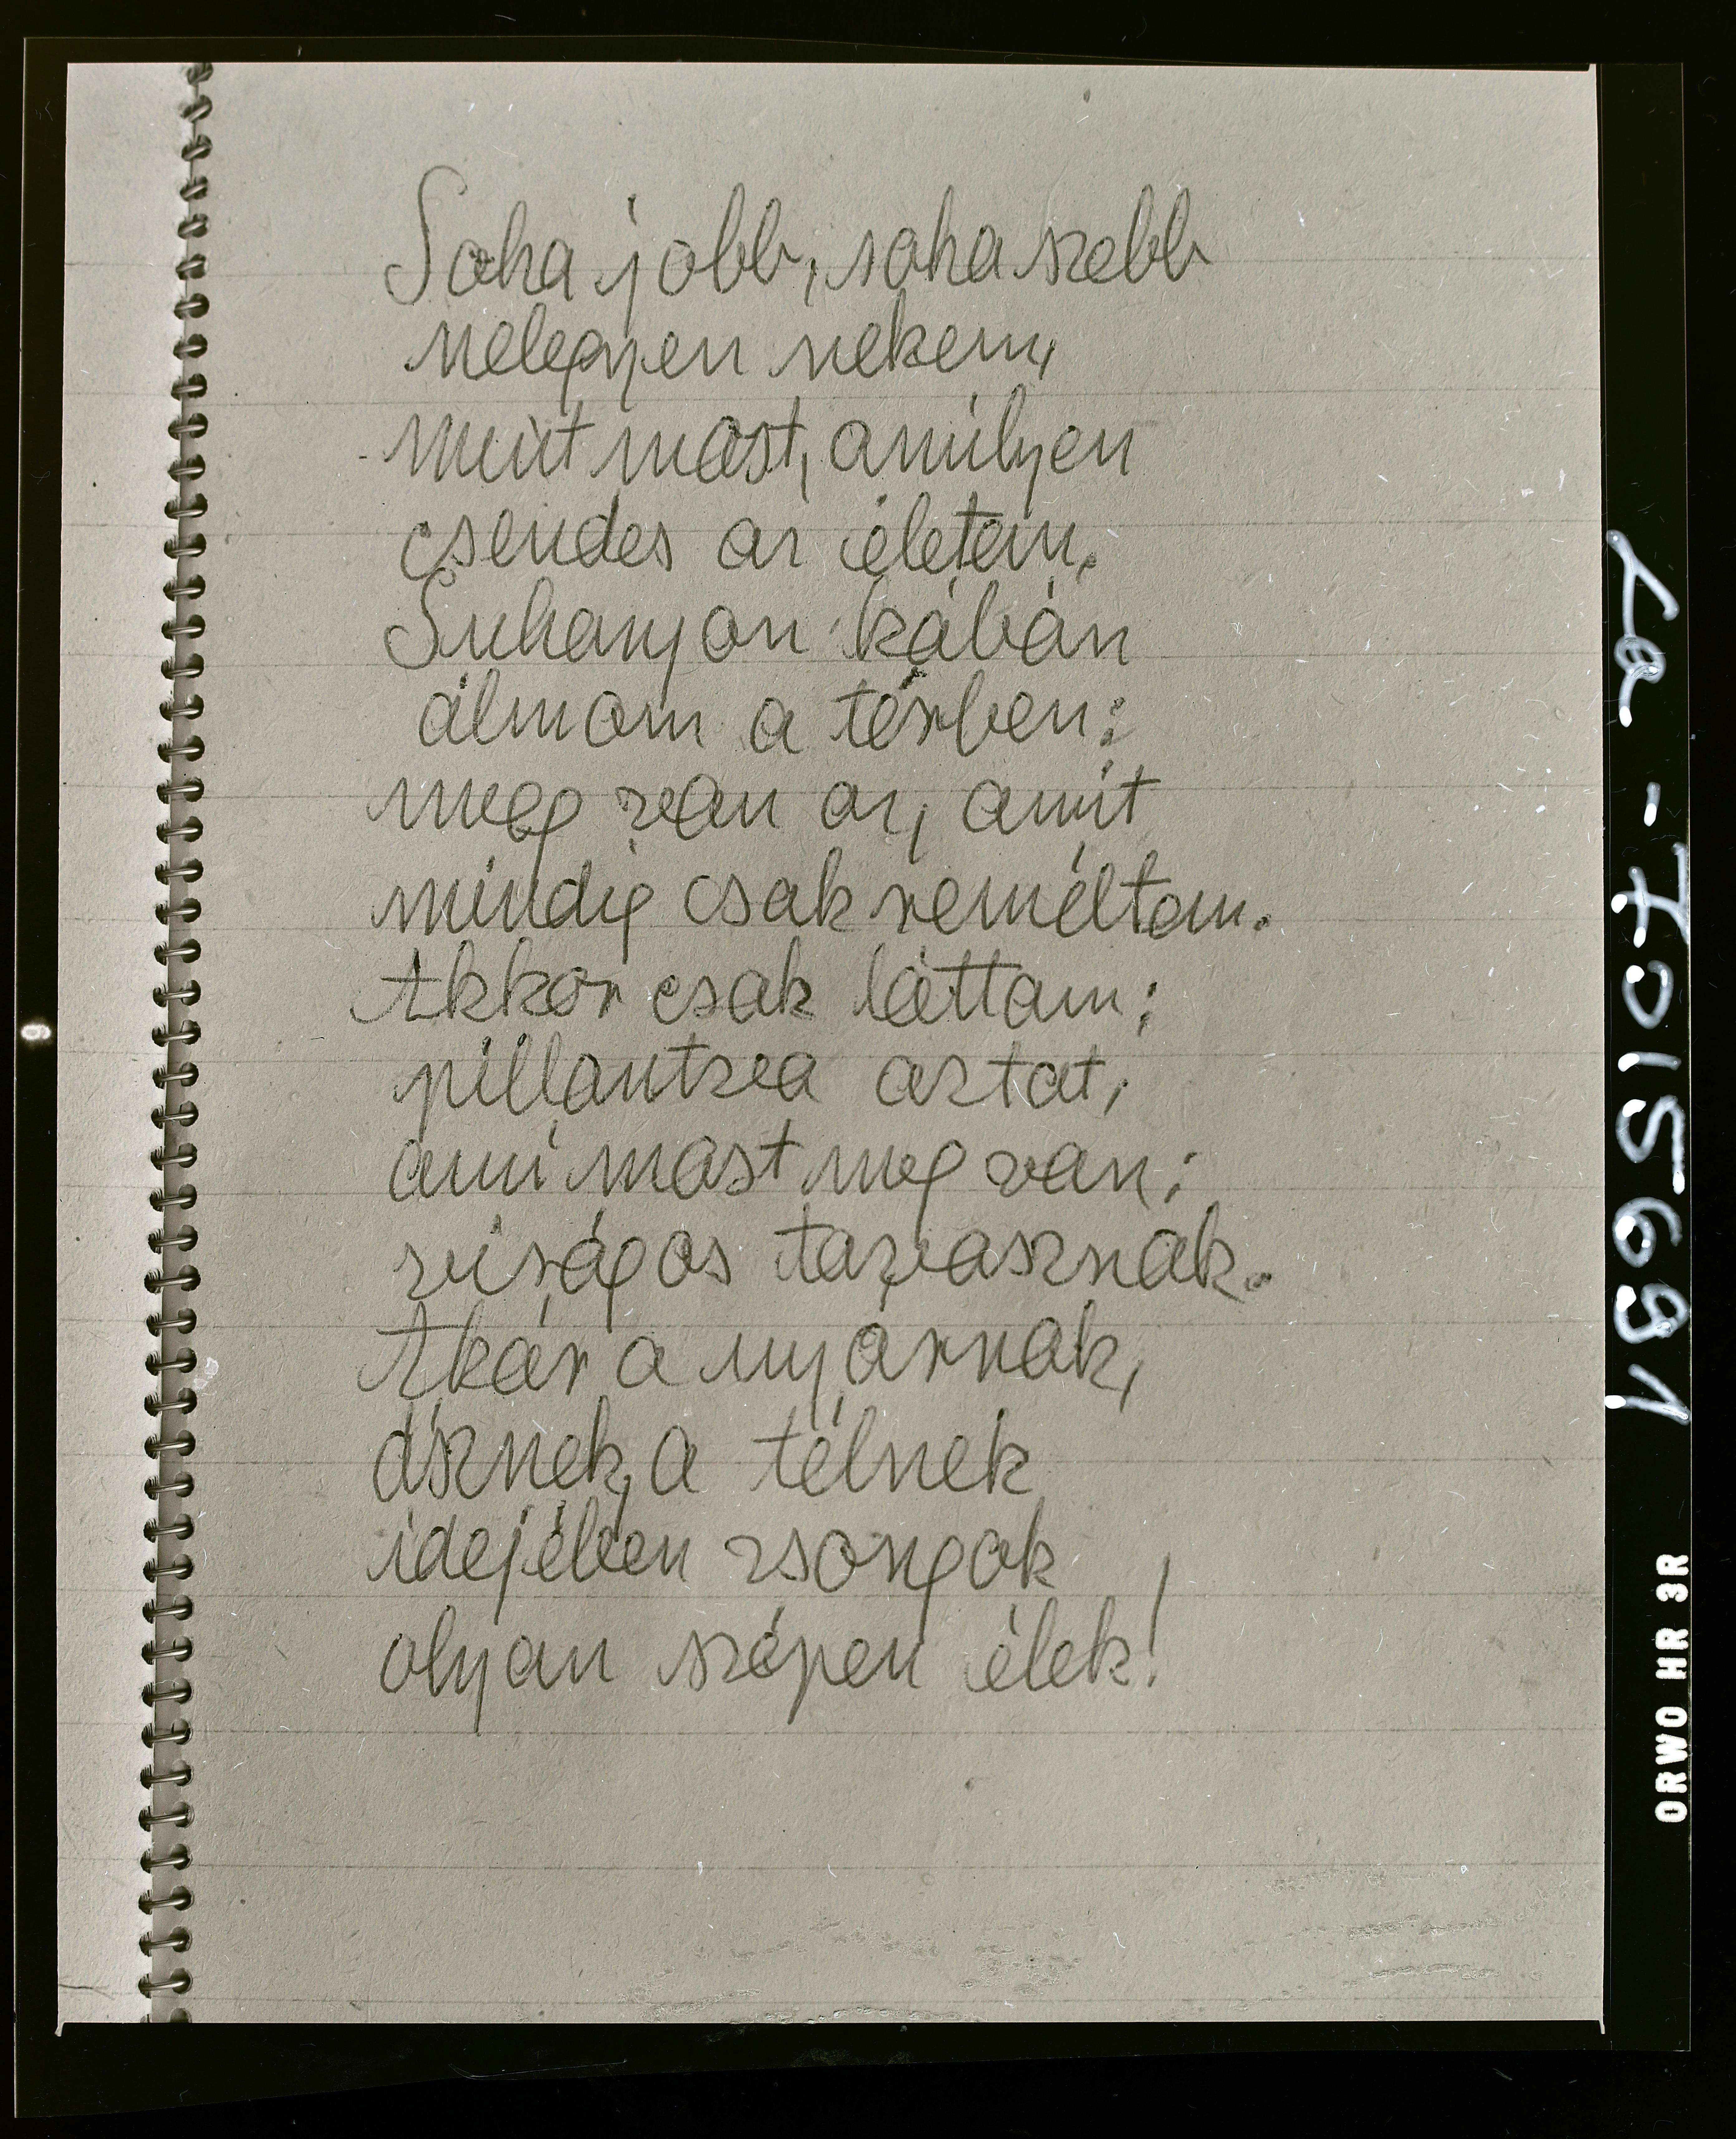 Soha jobb, soha szebb
nelegyen nekem,
mint most, amilyen
csendes az életem.
Suhanjon kábán
álmom a térben:
meg van az, amit
mindig csak reméltem.
Akkor csak láttam:
pillantva aztat,
ami most meg van:
virágos tavasznak.
Akár a nyárnak,
ősznek, a télnek
idejében zsongok
olyan szépen élek!
La - 7015691
ORWO HR 3R
9